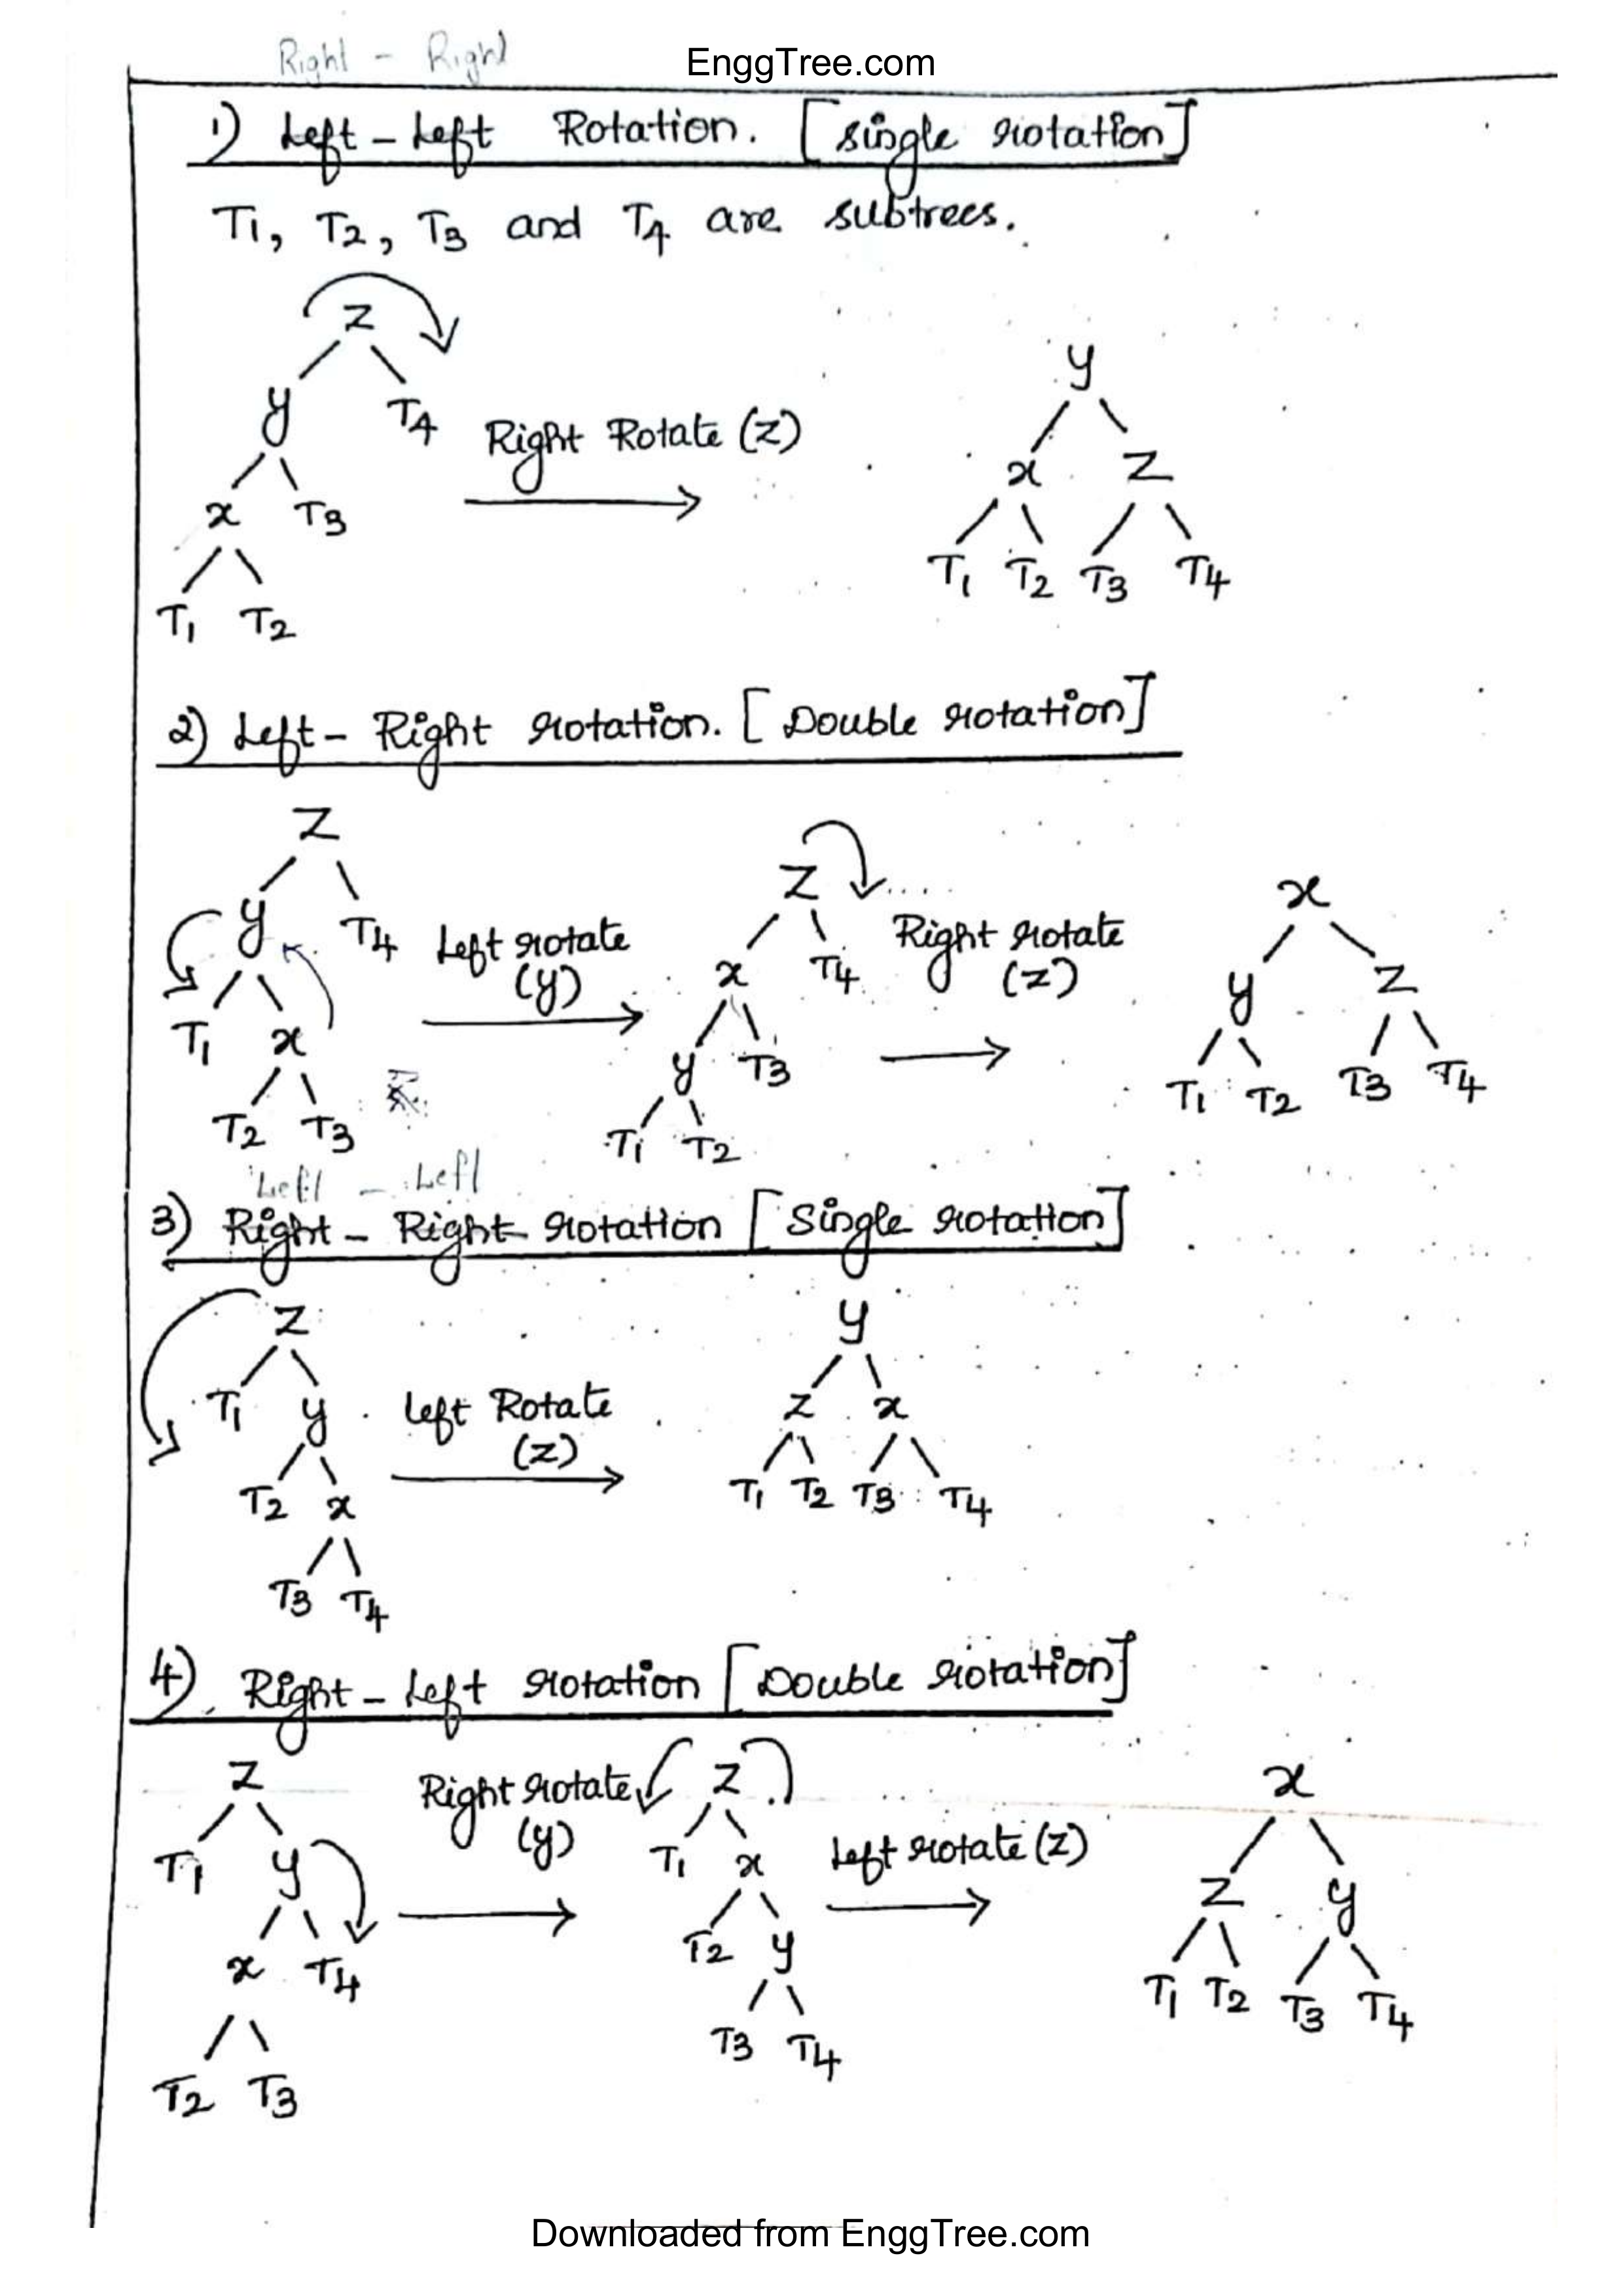 Right - Right
EnggTree.com
1) Left-Left Rotation. [single rotation]
T1, T2, T3 and T4 are subtrees.
z
y T4
x T3
T1 T2
Right Rotate (z)
y
x z
T1 T2 T3 T4
2) Left-Right rotation. [Double rotation]
z
y T4
T1 x
T2 T3
Left rotate
(y)
z
x T4
y T3
T1 T2
Right rotate
(z)
x
y z
T1 T2 T3 T4
Left - Left
3) Right-Right rotation [Single rotation]
z
T1 y
T2 x
T3 T4
Left Rotate
(z)
y
z x
T1 T2 T3 T4
4). Right-Left rotation [Double rotation]
z
T1 y
x T4
T2 T3
Right rotate
(y)
z
T1 x
T2 y
T3 T4
Left rotate (z)
x
z y
T1 T2 T3 T4
Downloaded from EnggTree.com